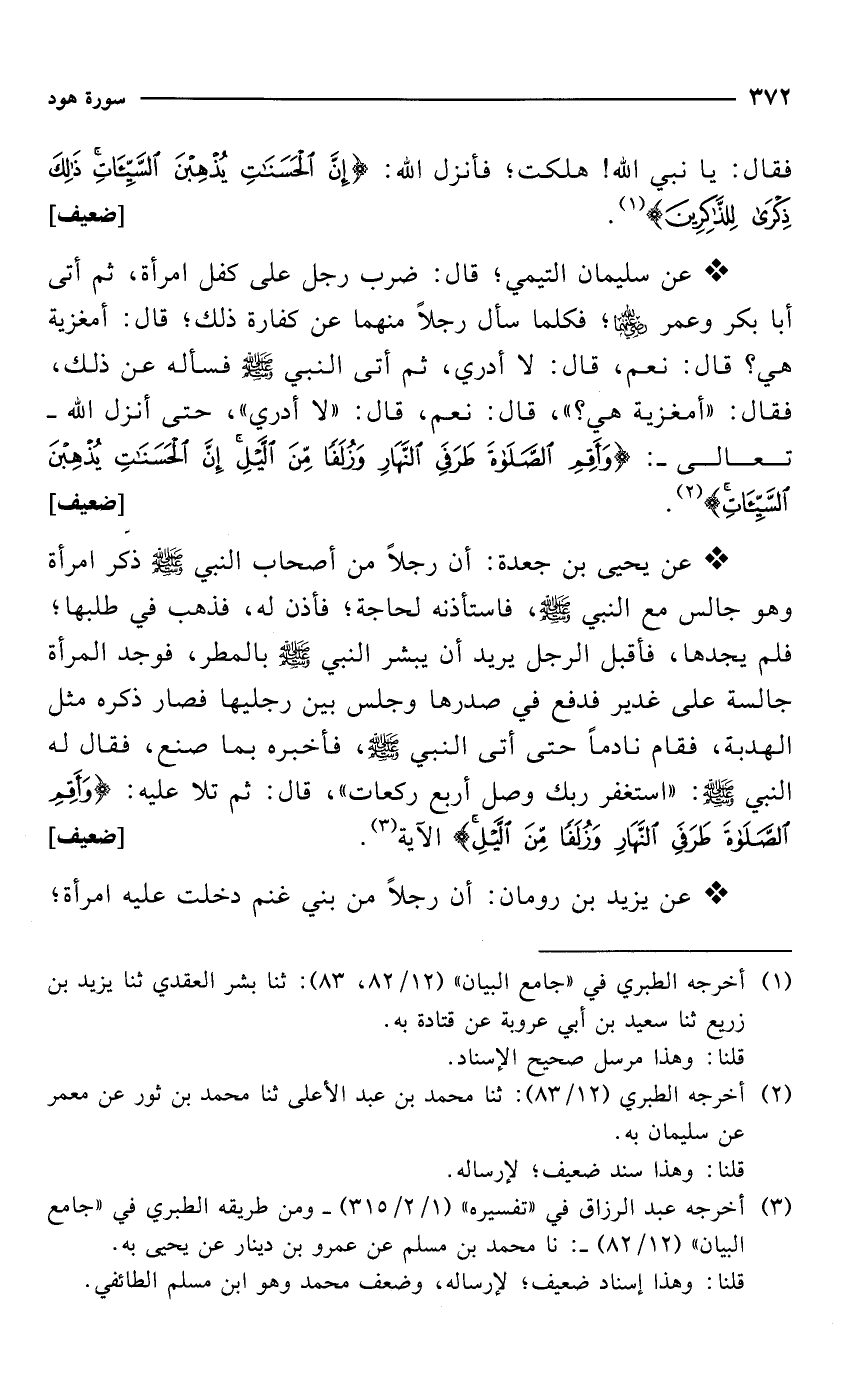 ٣٧٢ سورة هود
فقال: يا نبي الله! هلكت؛ فأنزل الله: ﴿إِنَّ ٱلْحَسَنَٰتِ يُذْهِبْنَ ٱلسَّيِّـَٔاتِۚ ذَٰلِكَ
ذِكْرَىٰ لِلذَّٰكِرِينَ﴾(١). [ضعيف]
❖ عن سليمان التيمي؛ قال: ضرب رجل على كفل امرأة، ثم أتى
أبا بكر وعمر رضي الله عنهما؛ فكلما سأل رجلاً منهما عن كفارة ذلك؛ قال: أمغزية
هي؟ قال: نعم، قال: لا أدري، ثم أتى النبي ﷺ فسأله عن ذلك،
فقال: «أمغزية هي؟»، قال: نعم، قال: «لا أدري»، حتى أنزل الله ـ
تـعـالـى ـ: ﴿وَأَقِمِ ٱلصَّلَوٰةَ طَرَفَيِ ٱلنَّهَارِ وَزُلَفًا مِّنَ ٱلَّيْلِۚ إِنَّ ٱلْحَسَنَٰتِ يُذْهِبْنَ
ٱلسَّيِّـَٔاتِۚ﴾(٢). [ضعيف]
❖ عن يحيى بن جعدة: أن رجلاً من أصحاب النبي ﷺ ذكر امرأة
وهو جالس مع النبي ﷺ، فاستأذنه لحاجة؛ فأذن له، فذهب في طلبها؛
فلم يجدها، فأقبل الرجل يريد أن يبشر النبي ﷺ بالمطر، فوجد المرأة
جالسة على غدير فدفع في صدرها وجلس بين رجليها فصار ذكره مثل
الهدبة، فقام نادماً حتى أتى النبي ﷺ، فأخبره بما صنع، فقال له
النبي ﷺ: «استغفر ربك وصل أربع ركعات»، قال: ثم تلا عليه: ﴿وَأَقِمِ
ٱلصَّلَوٰةَ طَرَفَيِ ٱلنَّهَارِ وَزُلَفًا مِّنَ ٱلَّيْلِۚ﴾ الآية(٣). [ضعيف]
❖ عن يزيد بن رومان: أن رجلاً من بني غنم دخلت عليه امرأة؛
(١) أخرجه الطبري في «جامع البيان» (١٢/ ٨٢، ٨٣): ثنا بشر العقدي ثنا يزيد بن
زريع ثنا سعيد بن أبي عروبة عن قتادة به.
قلنا: وهذا مرسل صحيح الإسناد.
(٢) أخرجه الطبري (١٢/ ٨٣): ثنا محمد بن عبد الأعلى ثنا محمد بن ثور عن معمر
عن سليمان به.
قلنا: وهذا سند ضعيف؛ لإرساله.
(٣) أخرجه عبد الرزاق في «تفسيره» (١/ ٢/ ٣١٥) ـ ومن طريقه الطبري في «جامع
البيان» (١٢/ ٨٢) ـ: نا محمد بن مسلم عن عمرو بن دينار عن يحيى به.
قلنا: وهذا إسناد ضعيف؛ لإرساله، وضعف محمد وهو ابن مسلم الطائفي.